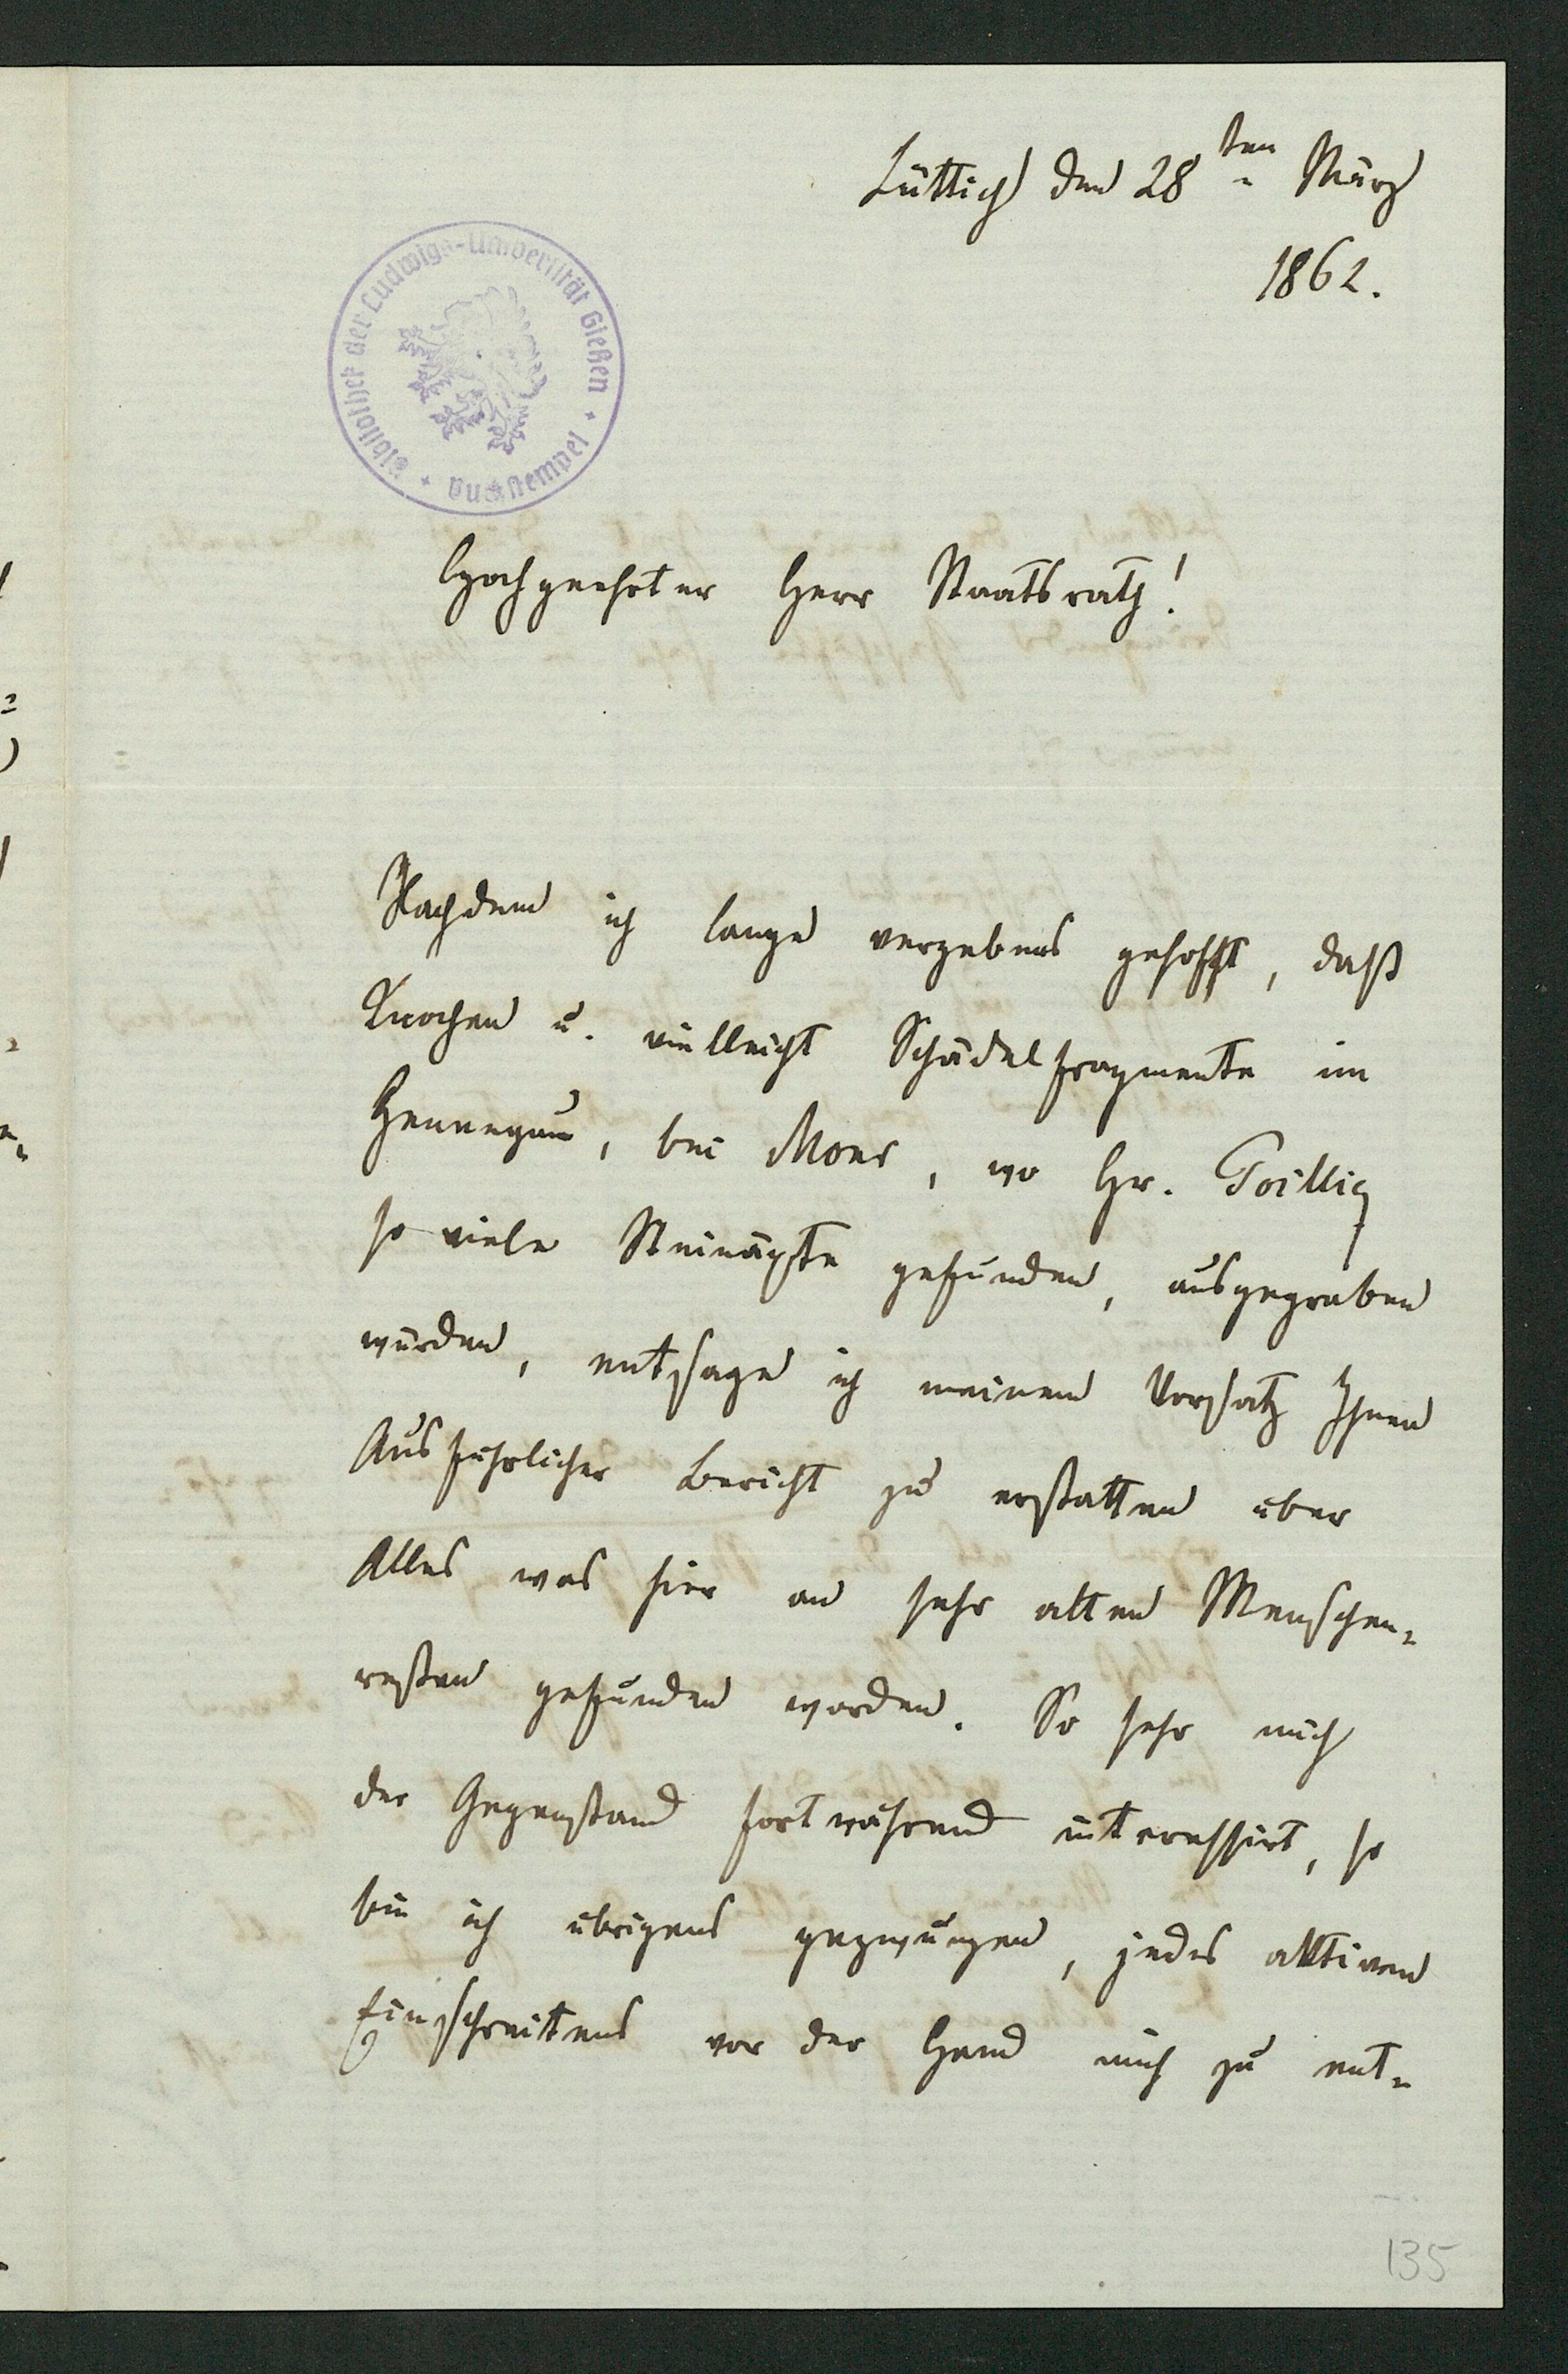 Lüttich den 28ten März
1862.
Bibliothek der Ludwigs-Universität Gießen
Buchstempel
Hochgeehrter Herr Staatsrath!
Nachdem ich lange vergebens gehofft, daß
Knochen u. vielleicht Schädelfragmente im
Hennegau, bei Mons, wo Hr. Toilliez
so viele Steinäxte gefunden, ausgegraben
würden, entsage ich meinem Vorsatz Ihnen
Ausführlicher Bericht zu erstatten über
Alles was hier an sehr alten Menschen-
resten gefunden worden. So sehr mich
der Gegenstand fortwährend interessirt, so
bin ich übrigens gezwungen, jedes aktiven
Einschreitens vor der Hand mich zu ent-
135